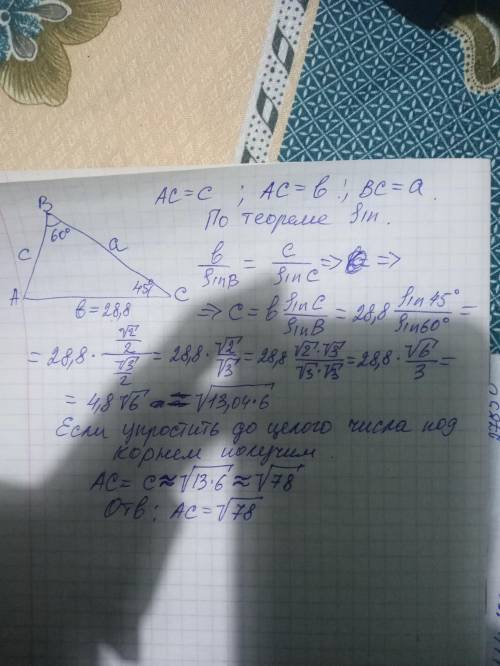 AC = c ; AC = b ; BC = a.
По теореме sin.
B
60°
c
a
A
45°
C
b = 28,8
b/sinB = c/sinC => =>
=> c = b sinC/sinB = 28,8 sin45°/sin60° =
= 28,8 · (√2/2)/(√3/2) = 28,8 · √2/√3 = 28,8 √2·√3/√3·√3 = 28,8 · √6/3 =
= 4,8√6 ≈ √13,04·6
Если упростить до целого числа под
корнем получим.
AC = c ≈ √13·6 ≈ √78
Отв: AC = √78